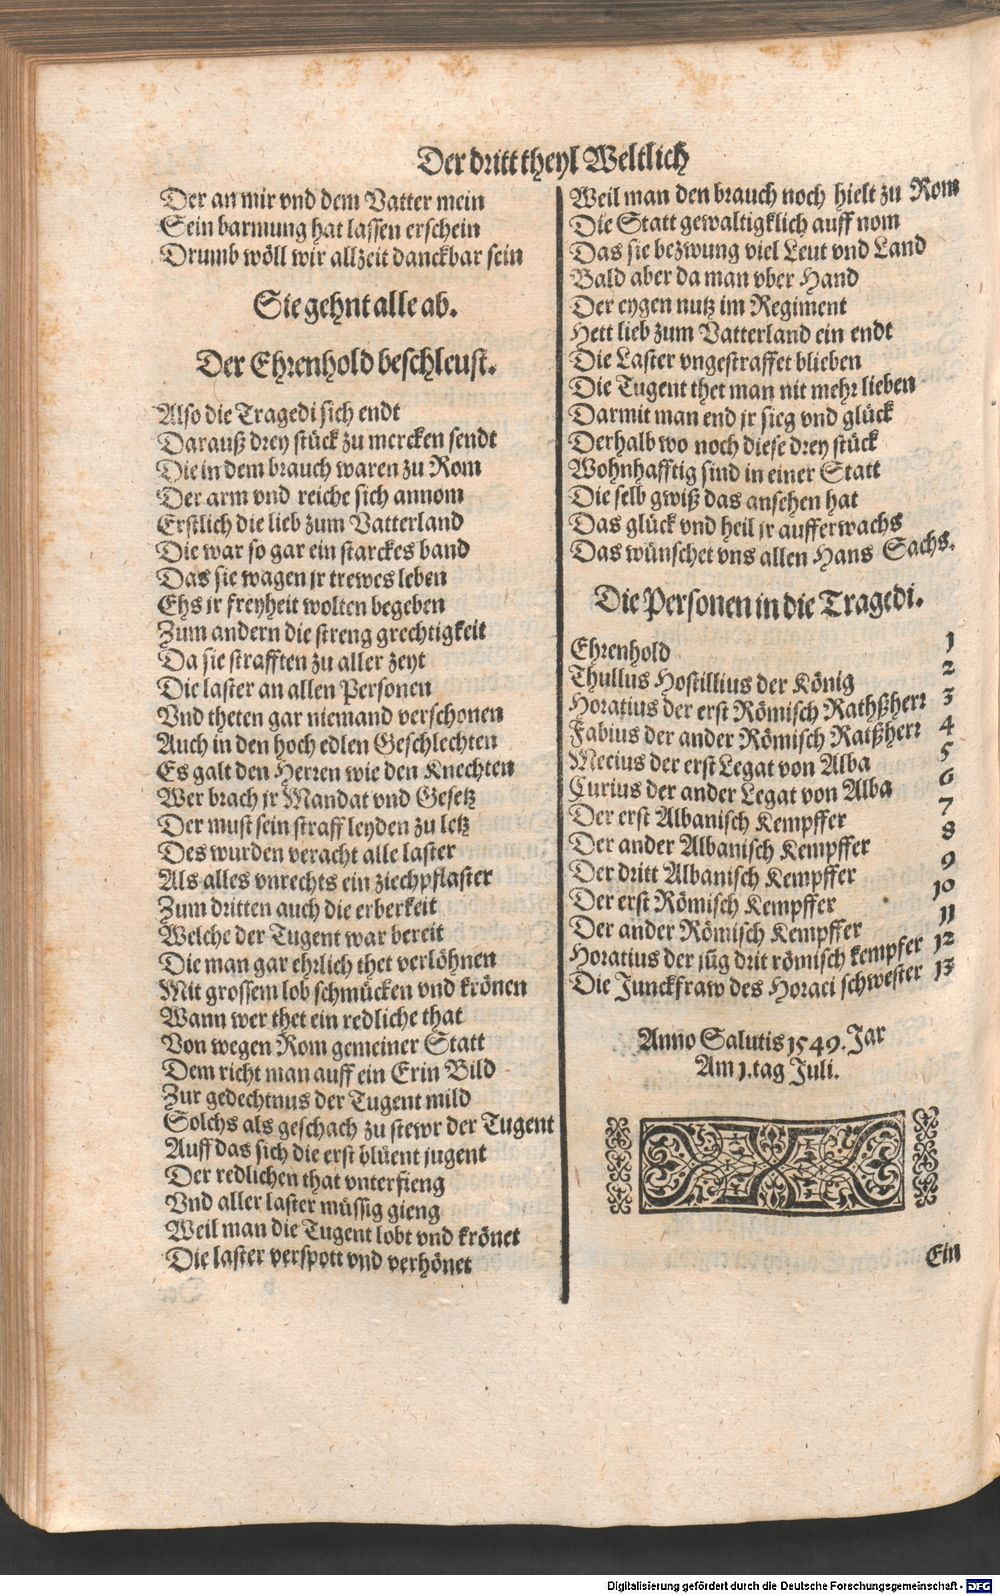 Der dritt theyl Weltlich
Der an mir vnd dem Vatter mein
Sein barmung hat lassen erschein
Drumb wöll wir allzeit danckbar sein
Sie gehnt alle ab.
Der Ehrenhold beschleust.
Also die Tragedi sich endt
Darauß drey stück zu mercken sendt
Die in dem brauch waren zu Rom
Der arm vnd reiche sich annom
Erstlich die lieb zum Vatterland
Die war so gar ein starckes band
Das sie wagen jr trewes leben
Ehs jr freyheit wolten begeben
Zum andern die streng grechtigkeit
Da sie strafften zu aller zeyt
Die laster an allen Personen
Vnd theten gar niemand verschonen
Auch in den hoch edlen Geschlechten
Es galt den Herren wie den Knechten
Wer brach jr Mandat vnd Gesetz
Der must sein straff leyden zu letz
Des wurden veracht alle laster
Als alles vnrechts ein ziechpflaster
Zum dritten auch die erberkeit
Welche der Tugent war bereit
Die man gar ehrlich thet verlöhnen
Mit grossem lob schmücken vnd krönen
Wann wer thet ein redliche that
Von wegen Rom gemeiner Statt
Dem richt man auff ein Erin Bild
Zur gedechtnus der Tugent mild
Solchs als geschach zu stewr der Tugent
Auff das sich die erst blüent jugent
Der redlichen that vnterfieng
Vnd aller laster müssig gieng
Weil man die Tugent lobt vnd krönet
Die laster verspott vnd verhönet
Weil man den brauch noch hielt zu Rom
Die Statt gewaltigklich auff nom
Das sie bezwung viel Leut vnd Land
Bald aber da man vber Hand
Der eygen nutz im Regiment
Hett lieb zum Vatterland ein endt
Die Laster vngestraffet blieben
Die Tugent thet man nit mehr lieben
Darmit man end jr sieg vnd glück
Derhalb wo noch diese drey stück
Wohnhafftig sind in einer Statt
Die selb gwiß das ansehen hat
Das glück vnd heil jr aufferwachs
Das wünschet vns allen Hans Sachs.
Die Personen in die Tragedi.
Ehrenhold 1
Thullus Hostillius der König 2
Horatius der erst Römisch Rathßherr 3
Fabius der ander Römisch Ratßherr 4
Mecius der erst Legat von Alba 5
Curius der ander Legat von Alba 6
Der erst Albanisch Kempffer 7
Der ander Albanisch Kempffer 8
Der dritt Albanisch Kempffer 9
Der erst Römisch Kempffer 10
Der ander Römisch Kempffer 11
Horatius der jũg drit römisch kempfer 12
Die Junckfraw des Horaci schwester 13
Anno Salutis 1549. Jar
Am 1. tag Juli.
Ein
Digitalisierung gefördert durch die Deutsche Forschungsgemeinschaft - DFG